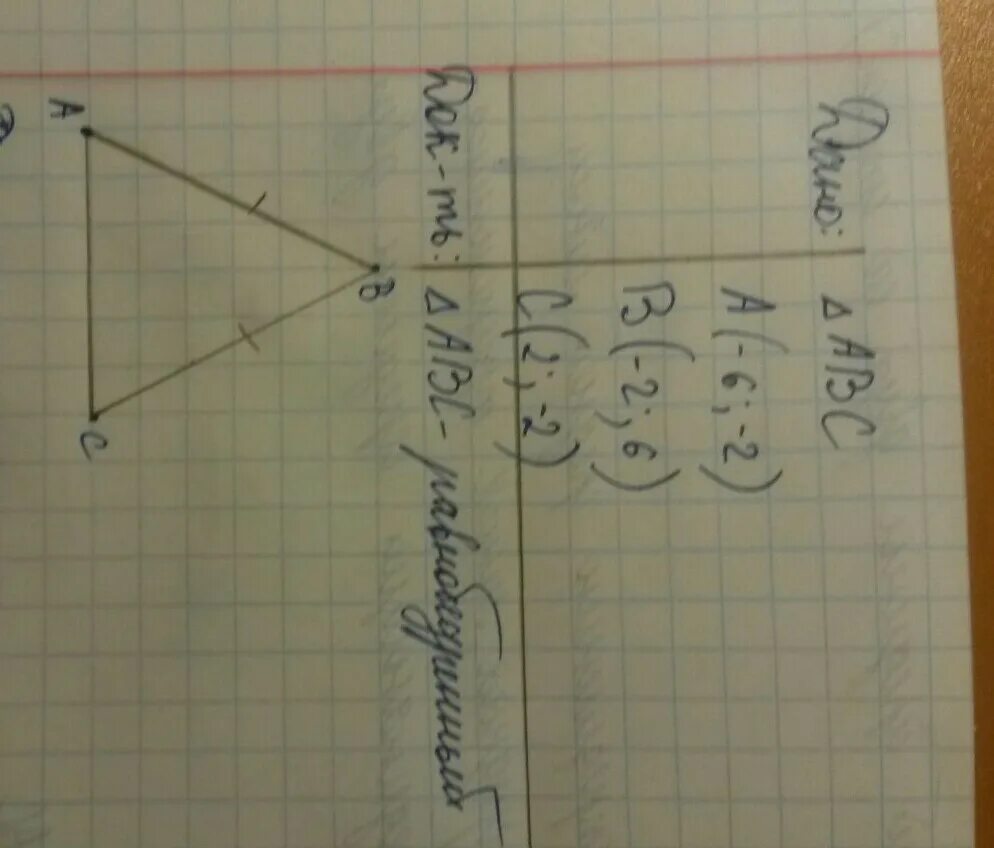 Дано: △ABC
A(-6;-2)
B(-2;6)
C(2;-2)
Док-ть: △ABC - равнобедренный
B
A
C